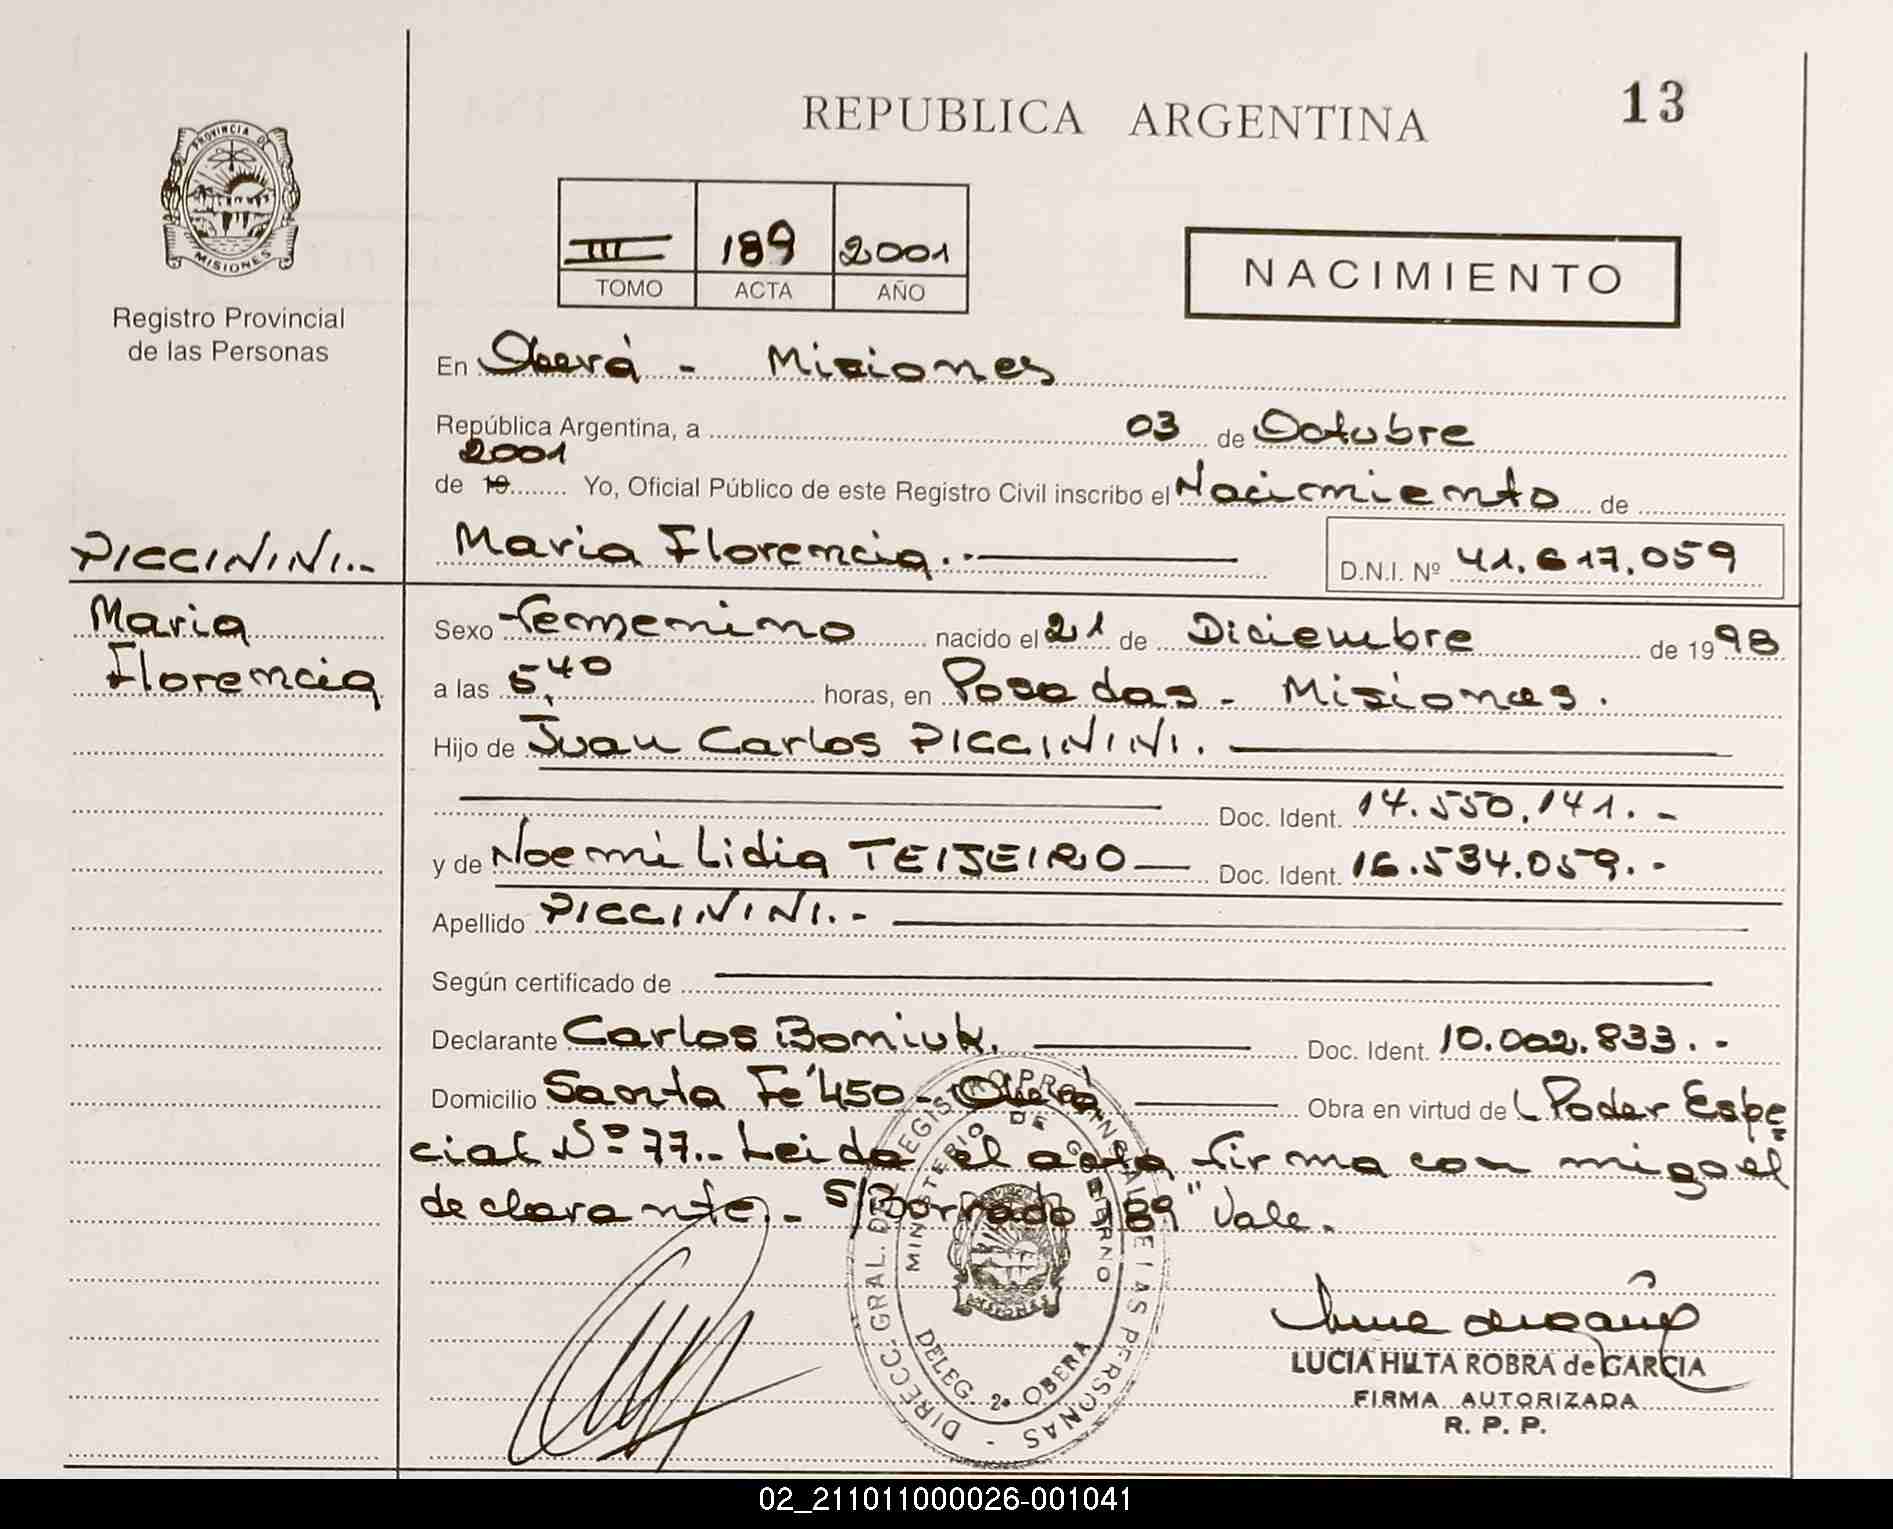 REPUBLICA ARGENTINA
13
PROVINCIA DE
MISIONES
Registro Provincial
de las Personas
III 189 2001
TOMO ACTA AÑO
NACIMIENTO
En Oberá - Misiones
República Argentina, a 03 de Octubre
2001
de 19 Yo, Oficial Público de este Registro Civil inscribo el Nacimiento de
PICCININI.-
Maria Florencia.-
D.N.I. Nº 41.617.059
Maria
Florencia
Sexo femenino nacido el 21 de Diciembre de 1998
a las 5,40 horas, en Posadas - Misiones.
Hijo de Juan Carlos PICCININI.
Doc. Ident. 14.550.141.-
y de Noemi Lidia TEIJEIRO Doc. Ident. 16.534.059.-
Apellido PICCININI.-
Según certificado de
Declarante Carlos Boniuk. Doc. Ident. 10.002.833.-
Domicilio Santa Fé 450 - Oberá Obra en virtud de Poder Espe=
cial Nº 77.- Leida el acta firma con migo el
declarante.- S/Borrado "189" Vale.
DIRECC. GRAL. DEL REGISTRO PROVINCIAL DE LAS PERSONAS -
MINISTERIO DE GOBIERNO
MISIONES
DELEG. 2ª OBERA
LUCIA HILTA ROBRA de GARCIA
FIRMA AUTORIZADA
R. P. P.
02_211011000026-001041